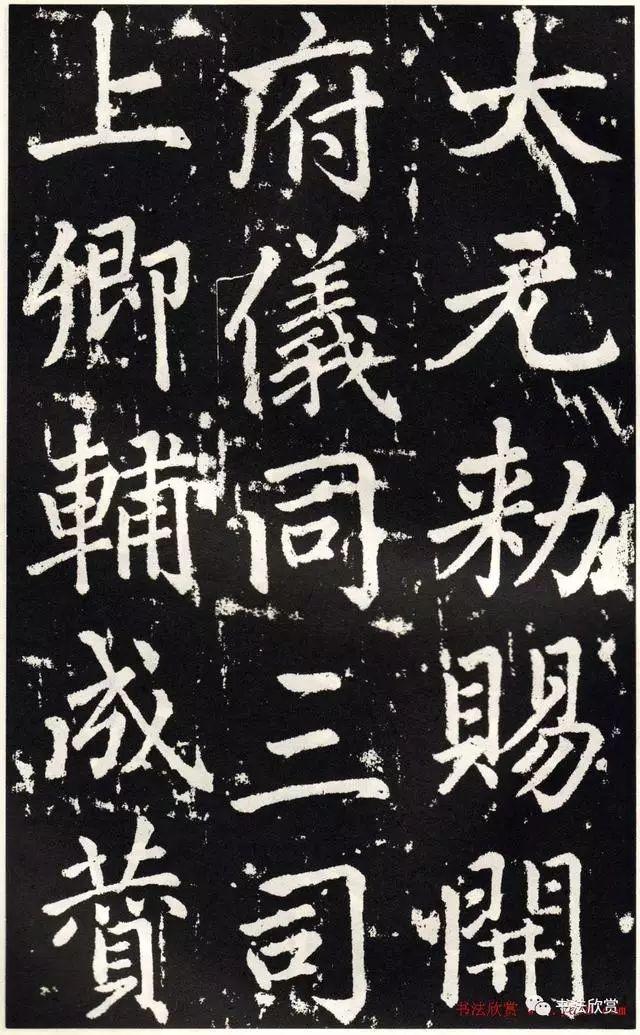 大元勑賜開
府儀同三司
上卿輔成贊
书法欣赏
书法欣赏